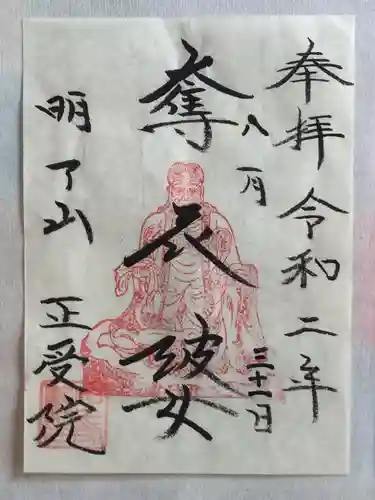 奉拝
令和二年
八月
三十一日
奪衣婆
明了山
正受院